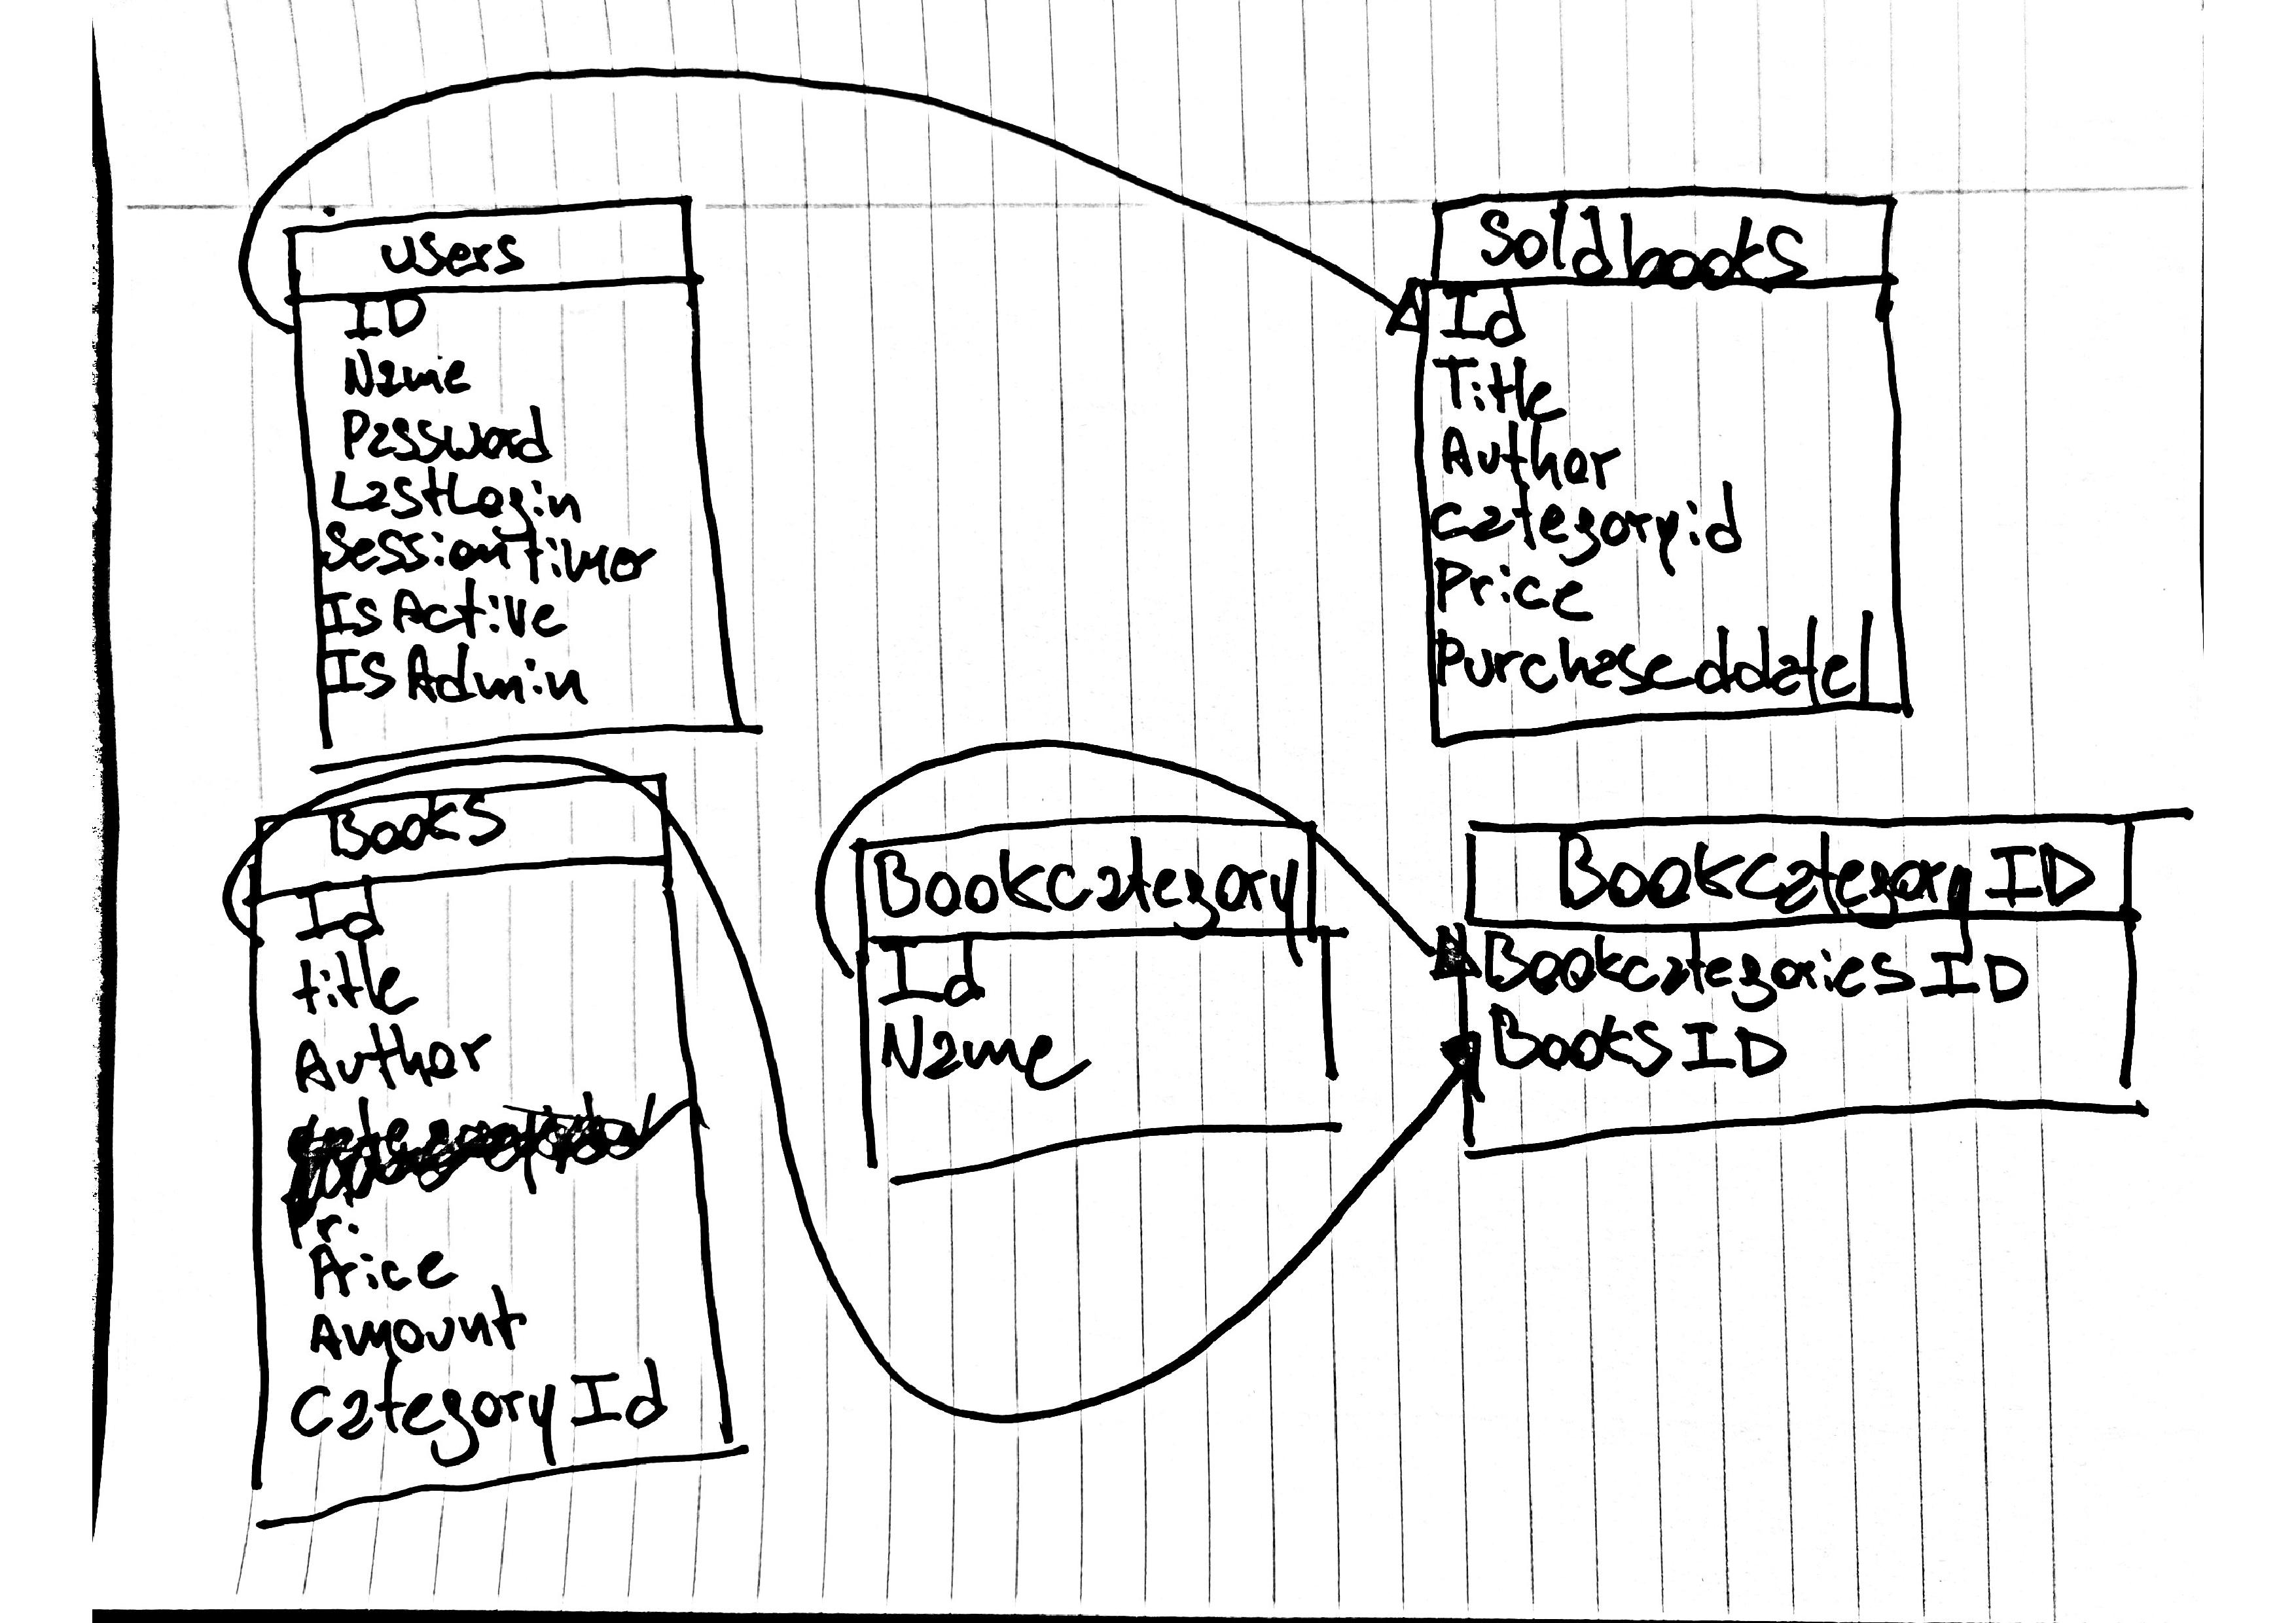 users
ID
Name
Password
LastLogin
Sessiontimer
IsActive
IsAdmin
Soldbooks
Id
Title
Author
categoryid
Price
Purchaseddate
Books
Id
title
Author
Pr.
Price
Amount
CategoryId
Bookcategory
Id
Name
BookcategoryID
BookcategoriesID
BooksID